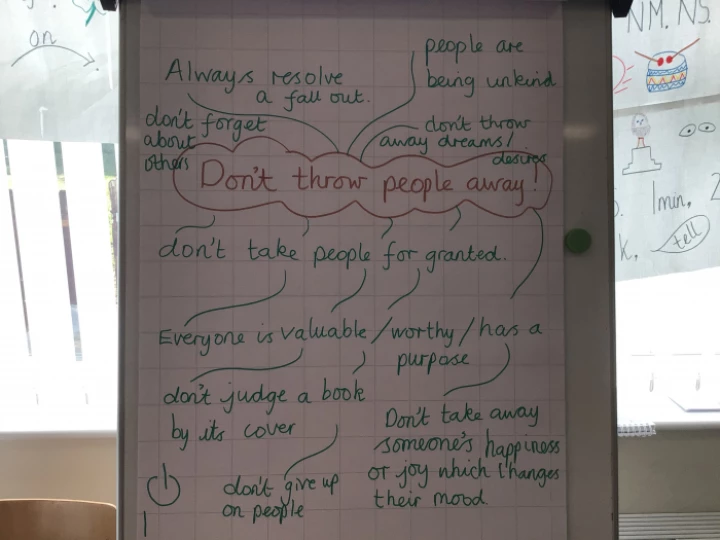 on
NM. NS.
people are
being unkind
Always resolve
a fall out.
don't forget
about
others
don't throw
away dreams/
desires
Don't throw people away!
1min.
tell
don't take people for granted.
Everyone is valuable/worthy/has a
purpose
don't judge a book
by its cover
Don't take away
someone's happiness
or joy which changes
their mood.
don't give up
on people